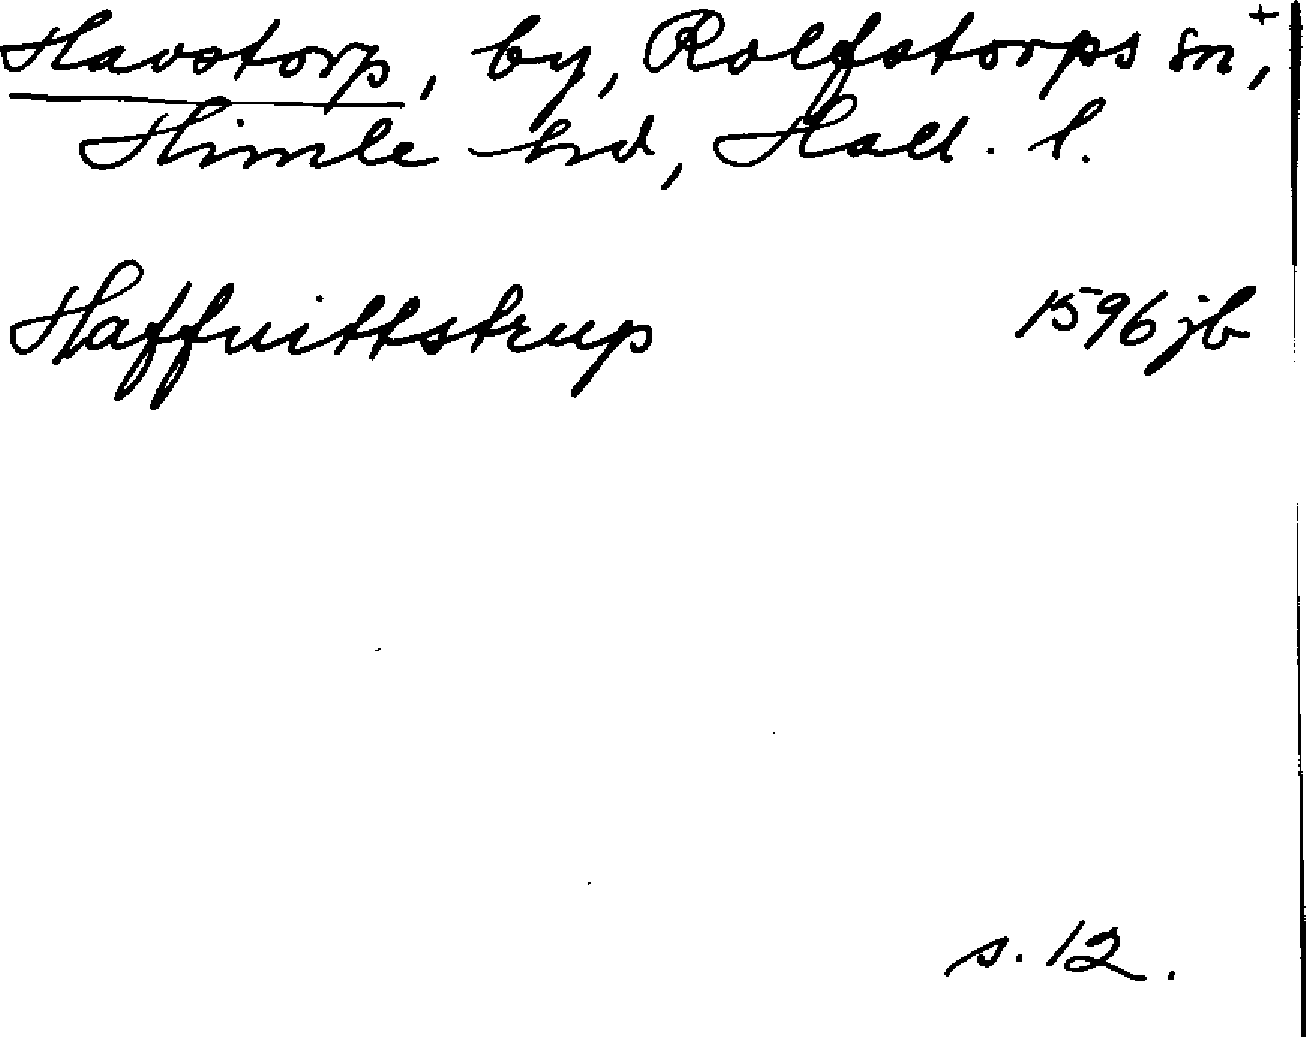 Havstorp, by, Rolfstorps sn+,
Himle hd, Hall. l.
Haffuittstrup 1596 jb
s. 12.